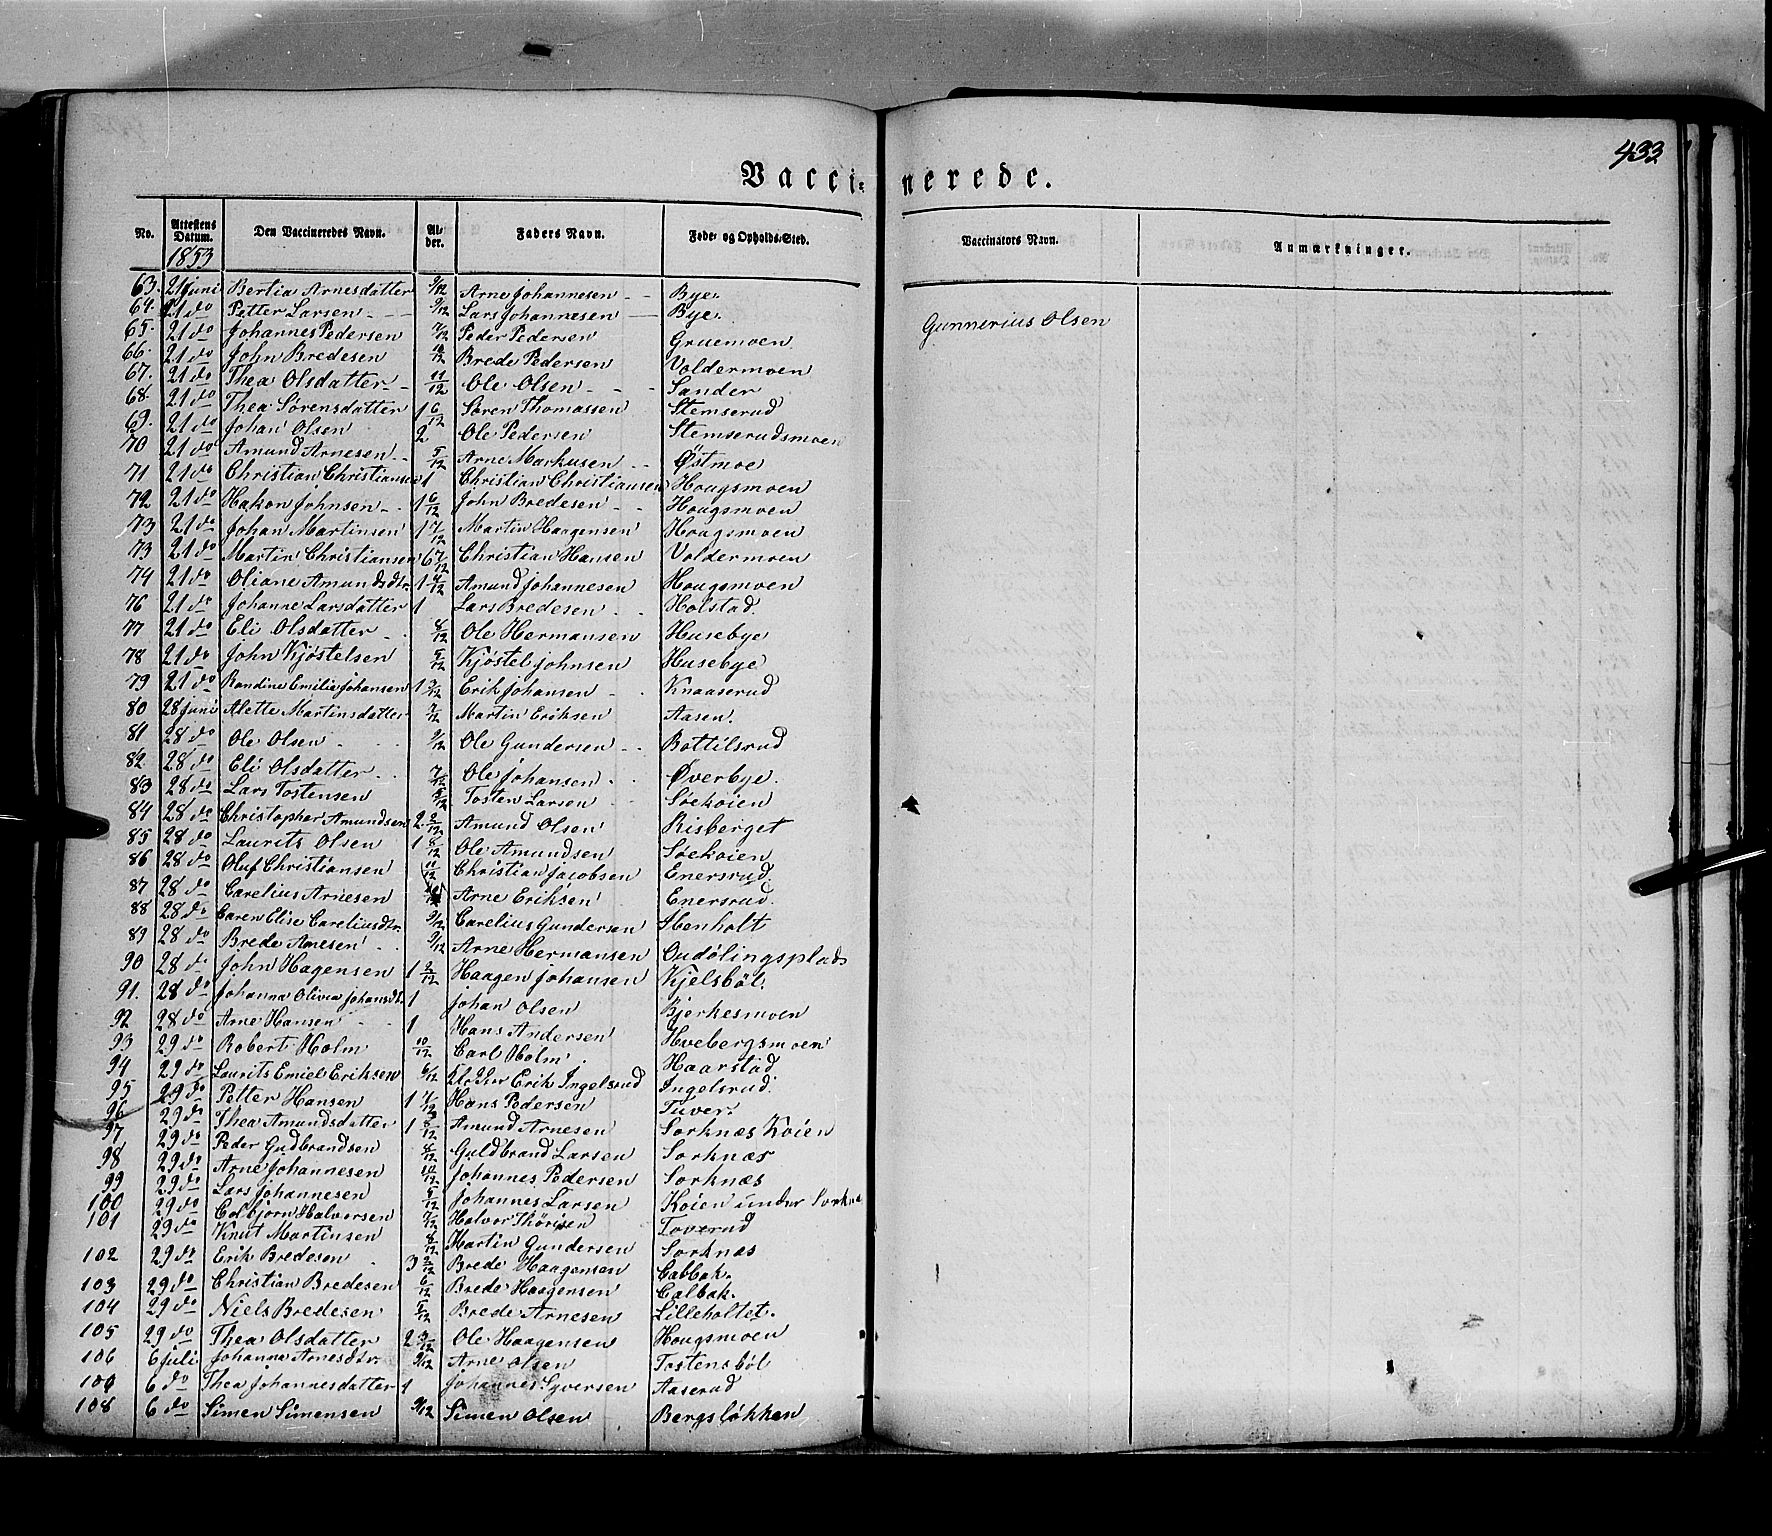 433
Vaccinerede.
No. Attestens Datum. Den Vaccineredes Navn. Alder. Faders Navn. Føde- og Opholds-Sted. Vaccinators Navn. Anmærkninger.
1853
63. 21 Juni Bertia Arnesdatter 9/12 Arne Johannesen Bye. Gunnerius Olsen
64. 21 do Petter Larsen 9/12 Lars Johannesen Bye.
65. 21 do Johannes Pedersen 7/12 Peder Pedersen Gruemoen
66. 21 do John Bredesen 10/12 Brede Pedersen Voldermoen
67. 21 do Thea Olsdatter 11/12 Ole Olsen Sander
68. 21 do Thea Sørensdatter 1 6/12 Søren Thomassen Stemserud
69. 21 do Johan Olsen 2 Ole Pedersen Stemserudsmoen
70 21 do Amund Arnesen 5/12 Arne Markusen Østmoe
71 21 do Christian Christiansen 1 Christian Christiansen Hougsmoen
72 21 do Hakon Johnsen 1 6/12 John Bredesen Hougsmoen
73 21 do Johan Martinsen 1 7/12 Martin Haagensen Hougsmoen
73 21 do Martin Christiansen 6 7/12 Christian Hansen Voldermoen
74 21 do Oliane Amundsdtr 1 4/12 Amund Johannesen Hougsmoen
76 21 do Johanne Larsdatter 1 Lars Bredesen Holstad.
77 21 do Eli Olsdatter 8/12 Ole Hermansen Husebye
78 21 do John Kjøstelsen 5/12 Kjøstel Johnsen Husebye
79 21 do Randine Emilie Johansen 1 3/12 Erik Johansen Knaaserud
80 28 Juni Alette Martinsdatter 7/12 Martin Eriksen Aasen.
81 28 do Ole Olsen 9/12 Ole Gundersen Bottilsrud
82. 28 do Eli Olsdatter 7/12 Ole Johansen Øverbye.
83 28 do Lars Tostensen 8/12 Tosten Larsen Søekoien
84 28 do Christopher Amundsen 2 2/12 Amund Olsen Risberget
85 28 do Laurits Olsen 1 8/12 Ole Amundsen Søekoien
86 28 do Oluf Christiansen 11/12 Christian Jacobsen Enersrud.
87 28 do Carelius Arnesen Arne Eriksen Enersrud.
88 28 do Caren Elise Careliusdtr 9/12 Carelius Gundersen Ibenholt
89 28 do Brede Arnesen 9/12 Arne Hermansen Oudølingsplads
90 28 do John Hagensen 1 2/12 Haagen Johansen Kjelsbøl.
91. 28 do Johanna Olivia Johansdtr 1 Johan Olsen Bjerkesmoen
92 28 do Arne Hansen 1 Hans Andersen Hvebergsmoen
93 29 do Robert Holm 10/12 Carl Holm Haarstad
94 29 do Laurits Emiel Eriksen 6/12 Erik Ingelsrud Ingelsrud.
95 29 do Petter Hansen 1 7/12 Hans Pedersen Tuver.
96 29 do Thea Amundsdatter 1 8/12 Amund Arnesen Sorknæs Koien
97 29 do Peder Gudbrandsen 8/12 Guldbrand Larsen Sorknæs
98 29 do Arne Johannesen 10/12 Johannes Pedersen Sorknæs
99 29 do Lars Johannesen 5/12 Johannes Larsen Koien under Sorkn
100 29 do Colbjørn Halvorsen 7/12 Halvor Thørisen Toverud
101 29 do Knut Martinsen 8/12 Martin Gundersen Sorknæs
102 29 do Erik Bredesen 3 2/12 Brede Haagensen Calbak.
103 29 do Christian Bredesen 6/12 Brede Haagensen Calbak.
104 29 do Niels Bredesen 5/12 Brede Arnesen Lilleholtet.
105 29 do Thea Olsdatter 2 3/12 Ole Haagensen Hougsmoen
106 6 Juli Johanna Arnesdtr 9/12 Arne Olsen Tostensbøl
100 6 do Thea Johannesdatter 1 Johannes Syversen Aaserud
108 6 do Simen Simensen 9/12 Simen Olsen Bergsløkken